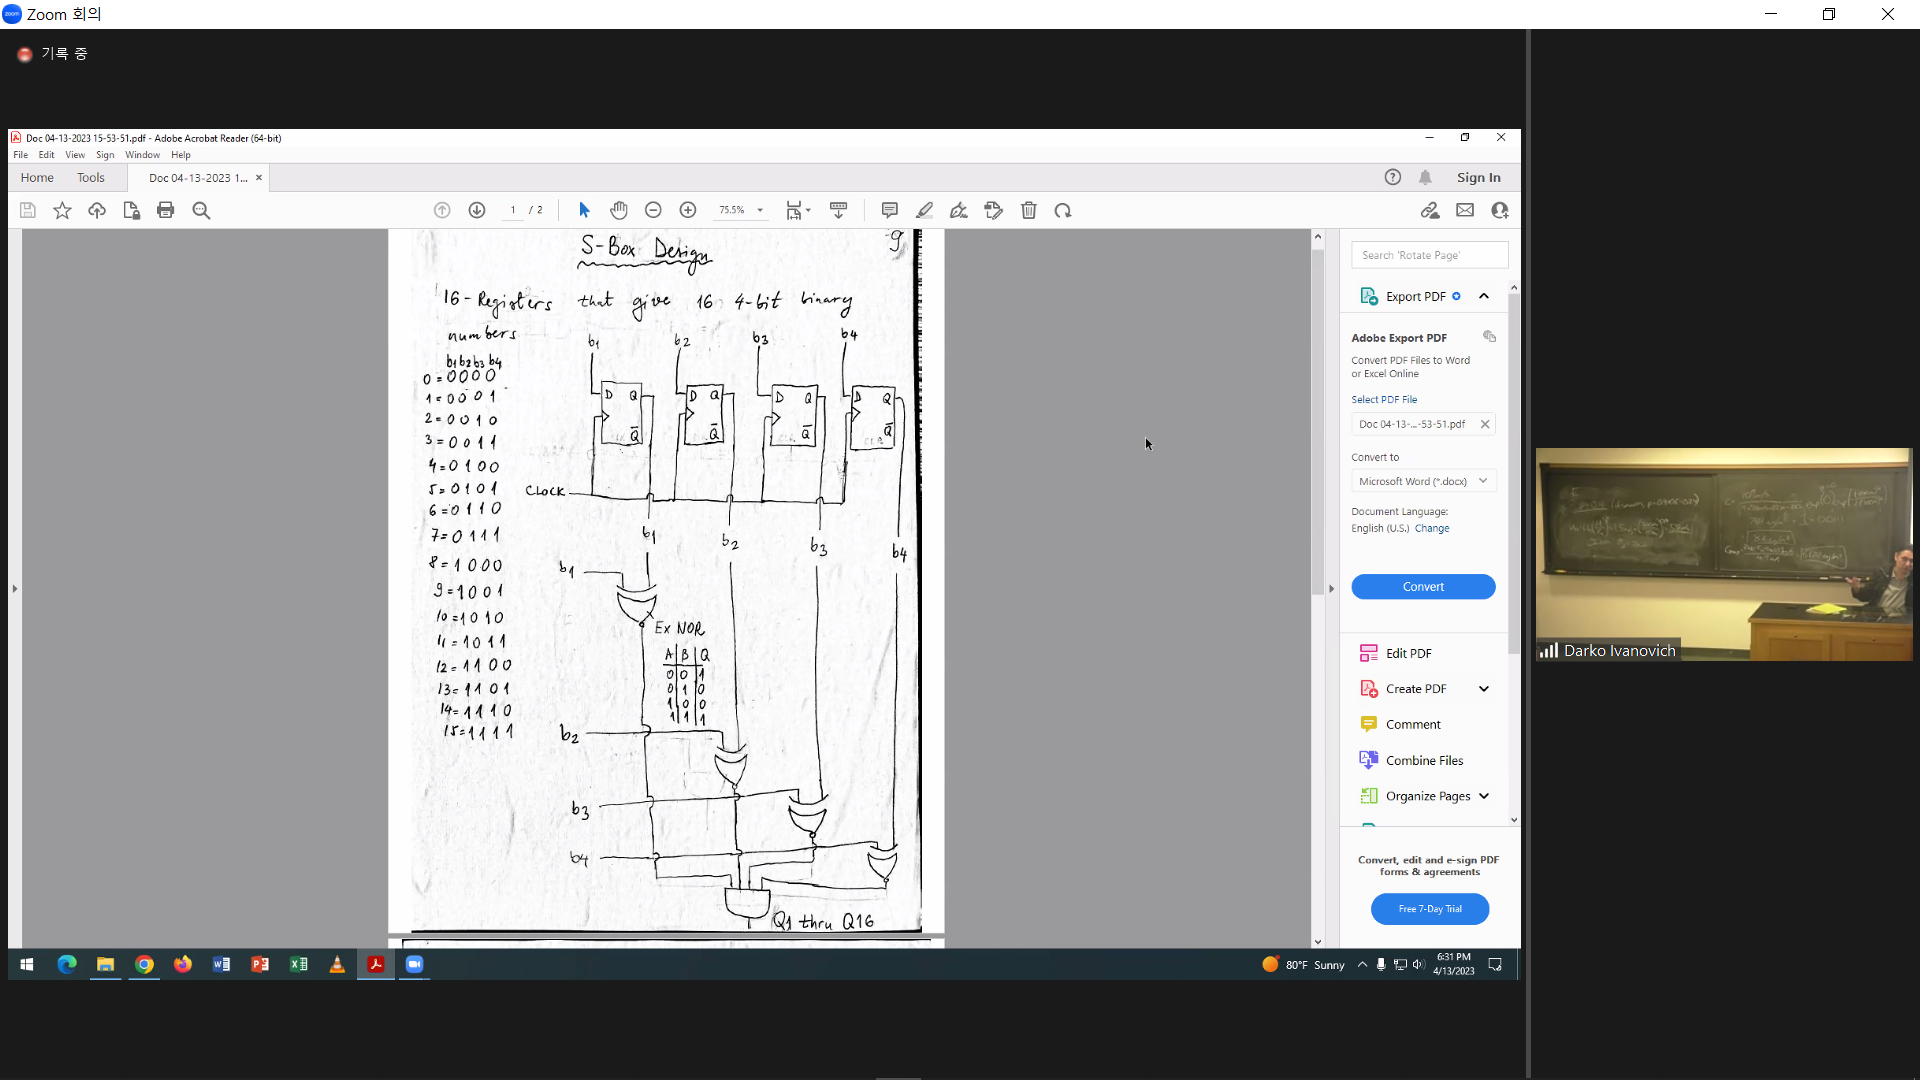 Zoom 회의
기록 중
Doc 04-13-2023 15-53-51.pdf - Adobe Acrobat Reader (64-bit)
File Edit View Sign Window Help
Home Tools Doc 04-13-2023 1... ×
Sign In
1 / 2
75.5%
S-Box Design
9
16-Registers that give 16 4-bit binary
numbers
b1 b2 b3 b4
b1b2b3b4
0=0000
1=0001
2=0010
3=0011
4=0100
5=0101
6=0110
7=0111
8=1000
9=1001
10=1010
11=1011
12=1100
13=1101
14=1110
15=1111
D Q D Q D Q D Q
Q̅ Q̅ Q̅ Q̅
CLOCK
b1 b2 b3 b4
b1
Ex NOR
A B Q
0 0 1
0 1 0
1 0 0
1 1 1
b2
b3
b4
Q1 thru Q16
Search 'Rotate Page'
Export PDF
Adobe Export PDF
Convert PDF Files to Word
or Excel Online
Select PDF File
Doc 04-13-...-53-51.pdf
Convert to
Microsoft Word (*.docx)
Document Language:
English (U.S.) Change
Convert
Edit PDF
Create PDF
Comment
Combine Files
Organize Pages
Convert, edit and e-sign PDF
forms & agreements
Free 7-Day Trial
80°F Sunny
6:31 PM
4/13/2023
Darko Ivanovich